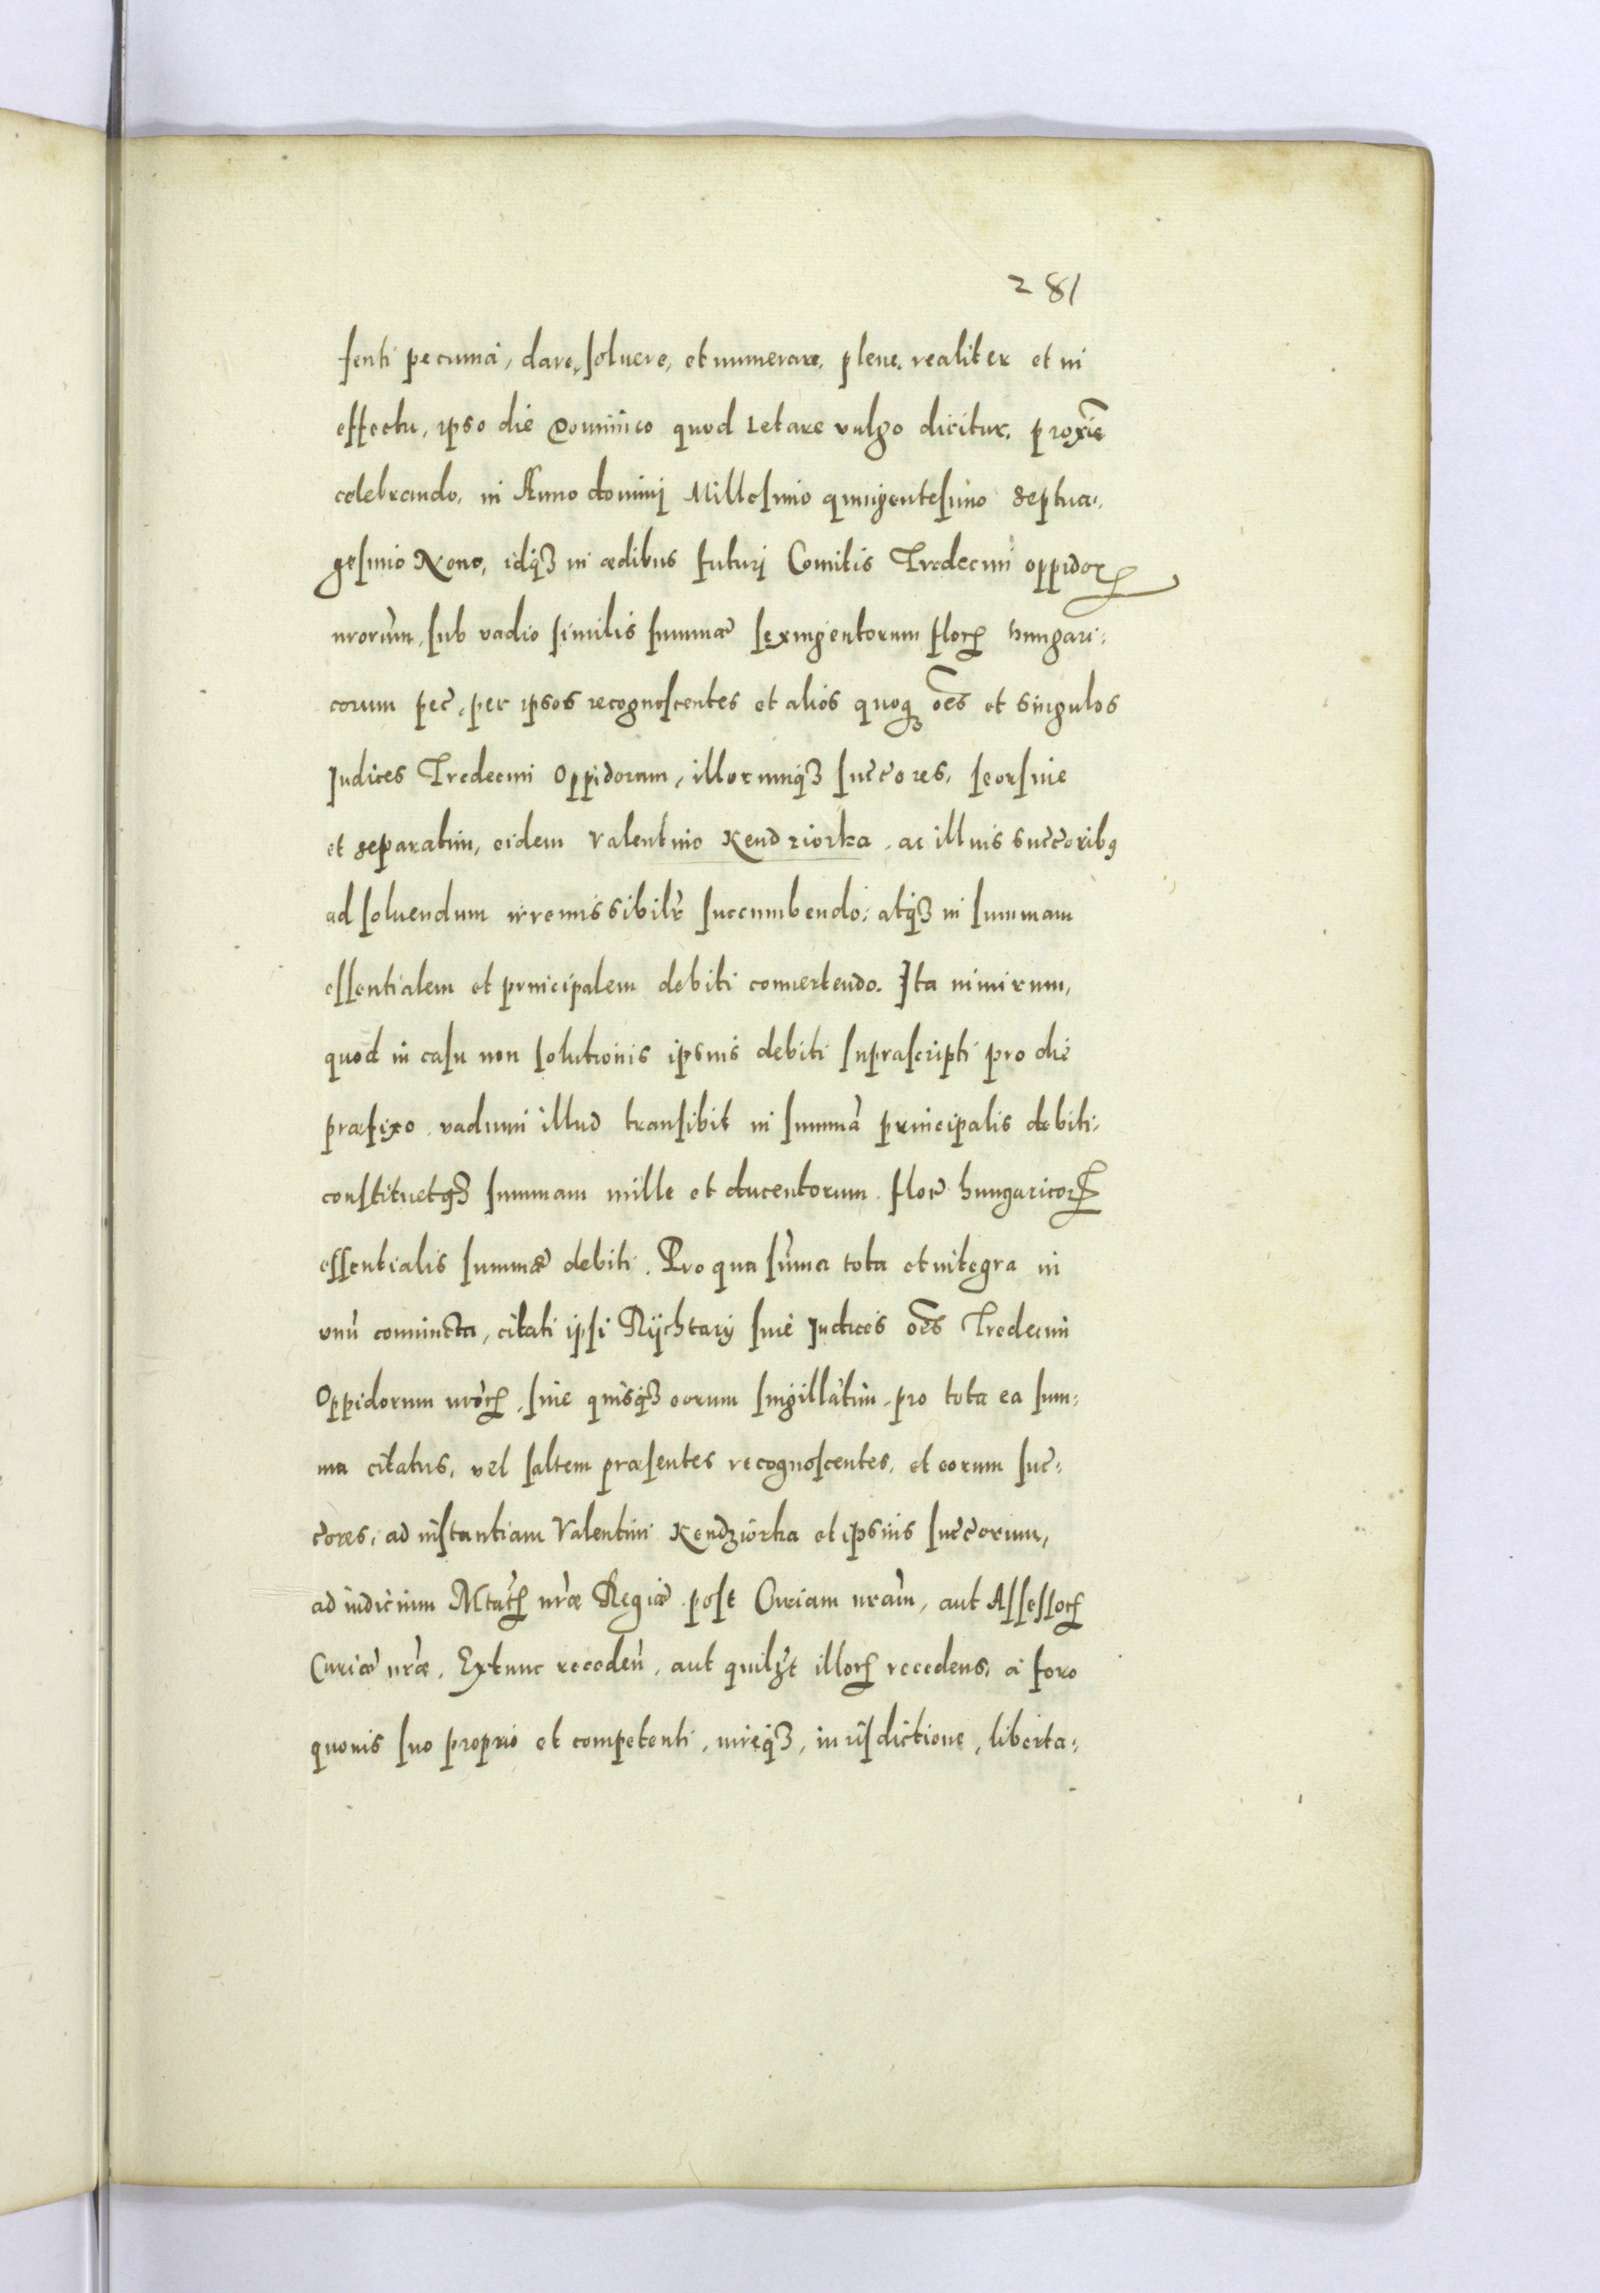 281
senti pecunia, dare, soluere, et numerare, plene, realiter et in
effectu, ipso die Dominico quod Letare vulgo dicitur, proxie
celebrando, in Anno domini Millesimo quingentesimo Septua-
gesimo Nono, idq3 in ædibus futuri Comitis Tredecim oppidor
nrorum, sub vadio similis summæ sexingentorum flor hungari-
corum pec, per ipsos recognoscentes et alios quoq oes et singulos
Judices Tredecim Oppidorum, illorumq3 succores, seorsiue
et separatim, eidem Valentino Kendziorka, ac illius succoribus
ad soluendum irremissibilr succumbendo, atq3 in summam
essentialem et principalem debiti conuertendo. Ita nimirum,
quod in casu non solutionis ipsius debiti suprascripti pro die
præfixo, vadium illud transibit in summā principalis debiti,
constituetq3 summam mille et ducentorum flor hungaricor
essentialis summæ debiti. Pro qua sūma tota et integra in
vnū coniuncta, citati ipsi Rychtarÿ siue Judices oes Tredecim
Oppidorum nror, siue quisq3 eorum singillatim, pro tota ea sum-
ma citatus, vel saltem præsentes recognoscentes, et eorum suc-
cores, ad instantiam Valentini Kendziorka et ipsius succorum,
ad iudicium Mtat nræ Regiæ post Curiam nram, aut Assessor
Curiæ nræ, Extunc receden, aut quilzt illor recedens, a foro
quouis suo proprio et competenti, iureq3, iurisdictione, liberta-